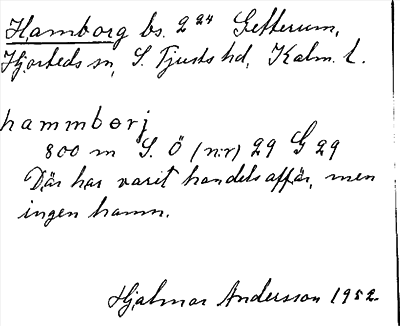 Hamborg bs. 2 24 Getterum,
Hjorteds sn, S. Tjusts hd, Kalm. l.
hammborj
800 m S. Ö (n:r) 29 G 29
Där har varit handelsaffär, men
ingen hamn.
Hjalmar Andersson 1952.